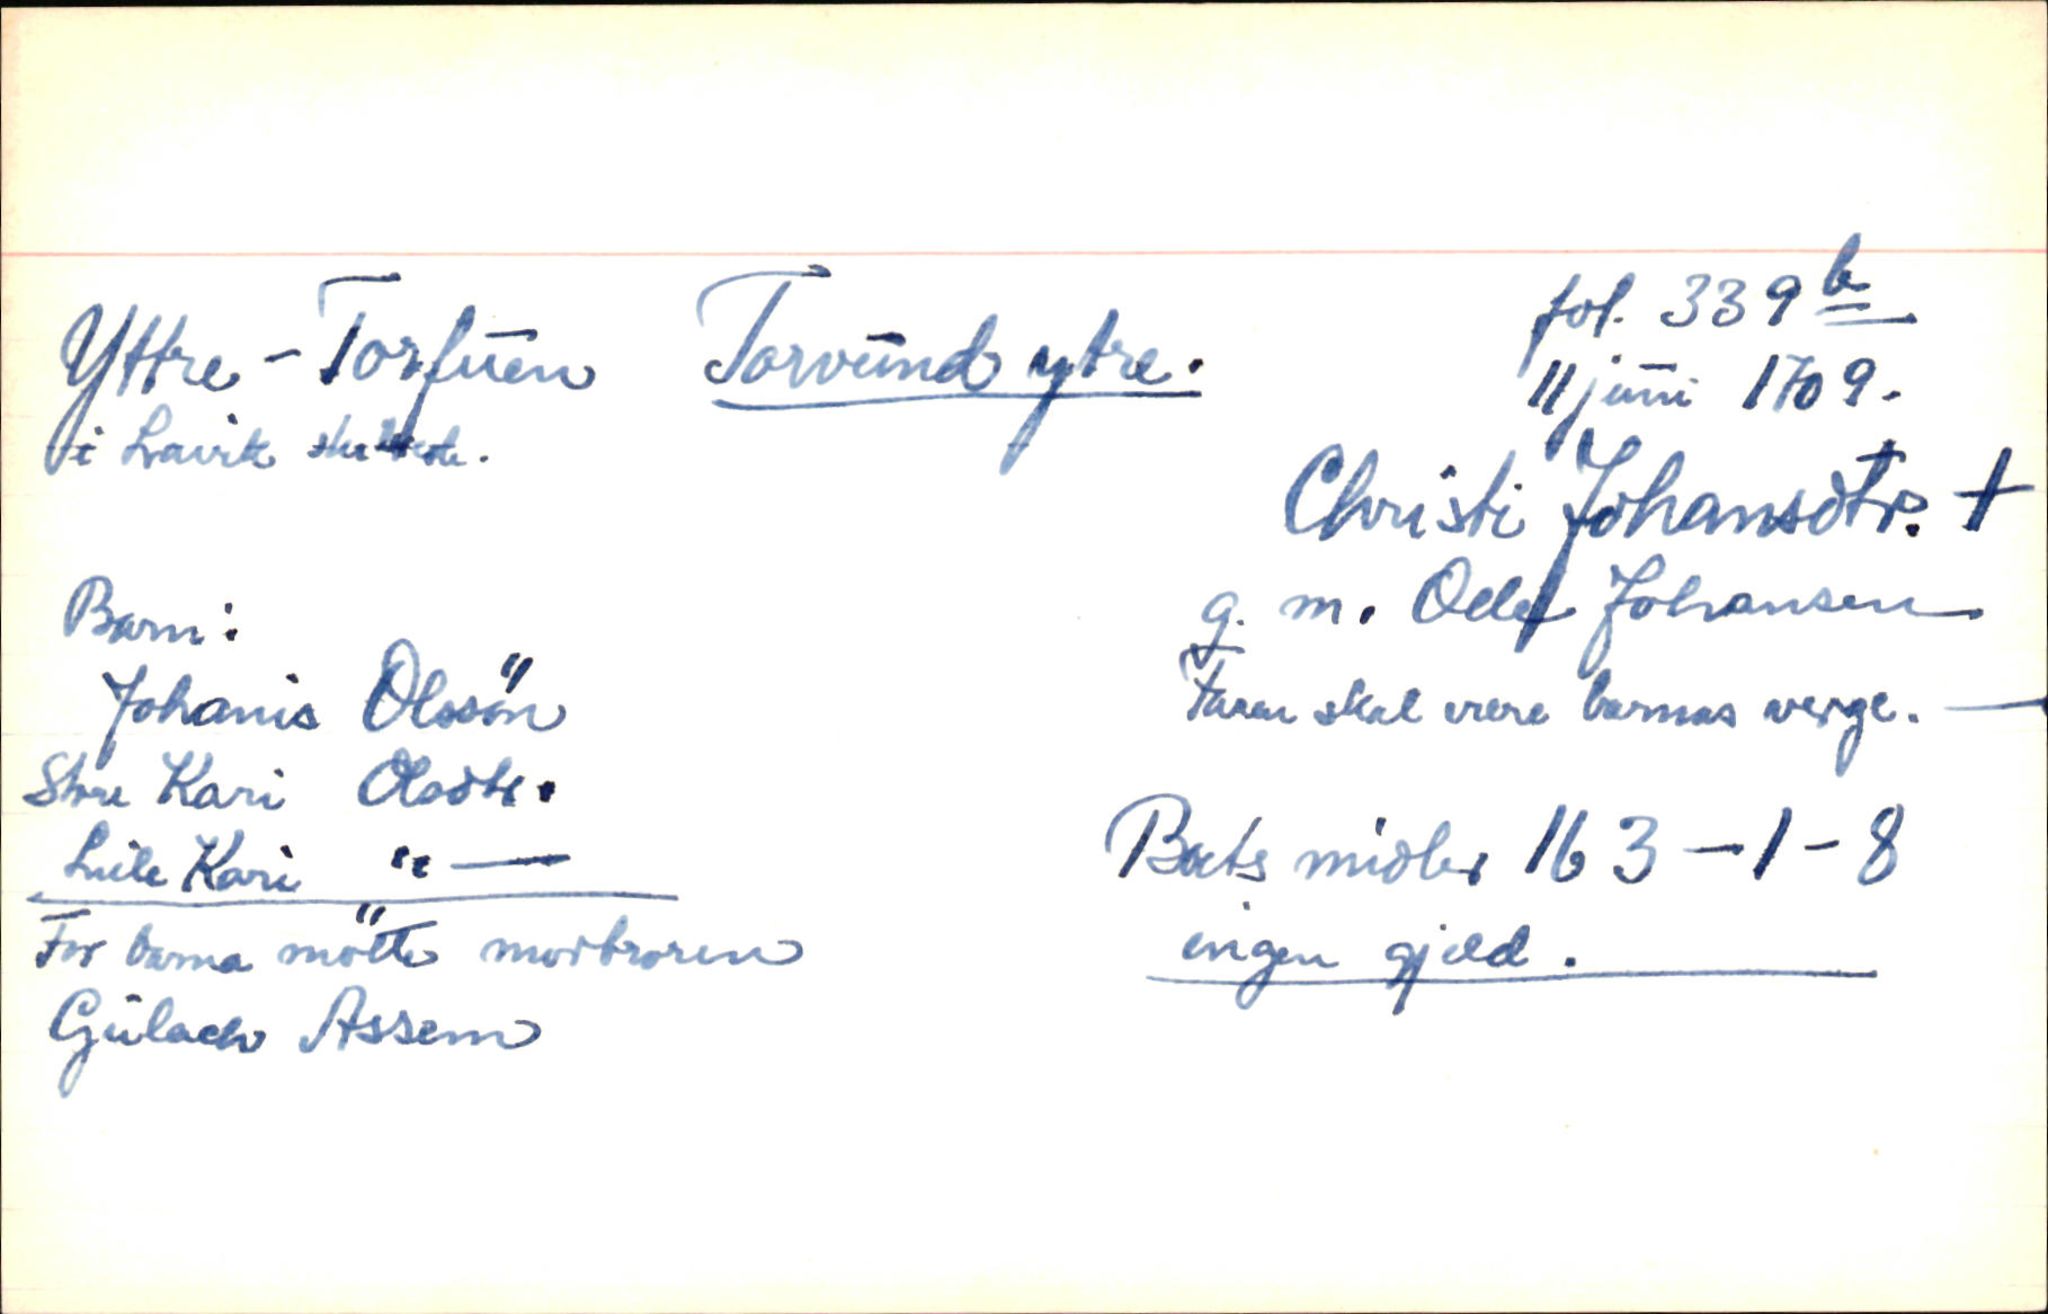 Yttre - Torfuen Torvund ytre. fol. 339 b
i Lavik 11 juni 1709.
Christi Johansdtr. +
g. m. Oelef Johansen
Faren skal være barnas verge. —
Barn:
Johanis Olssön
Store Kari Olsdtr.
Liile Kari " —
For barna mötte morbroren
Gulach Assem
Boets midler 163 - 1 - 8
ingen gjeld.